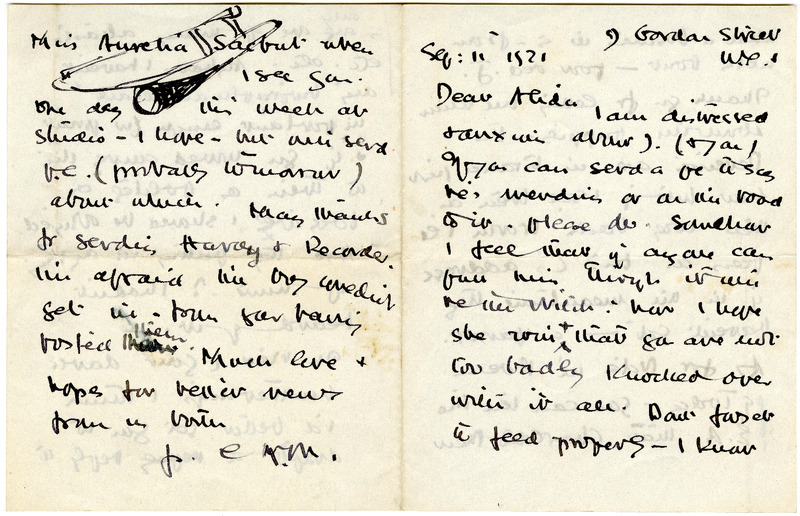 9 Gordon Street
Sep: 11 1921 W.C.1
Dear Alida
I am distressed
& anxious about J. (& you)
If you can send a p.c. to say
he's mending or on the road
to it - please do. Somehow
I feel that if anyone can
pull him through it will
be the Witch: how I hope
she won't & that you are not
too badly knocked over
with it all. Don't forget
to feed properly - I know
Miss Aurelia Sackbut when
I see you.
One day this week at
studio - I hope - but will send
p.c. (probably tomorrow)
about which. Many thanks
for sending Harvey & Recorder.
I'm afraid
get in - from your having
posted them. Much love &
hopes for better news
from us both